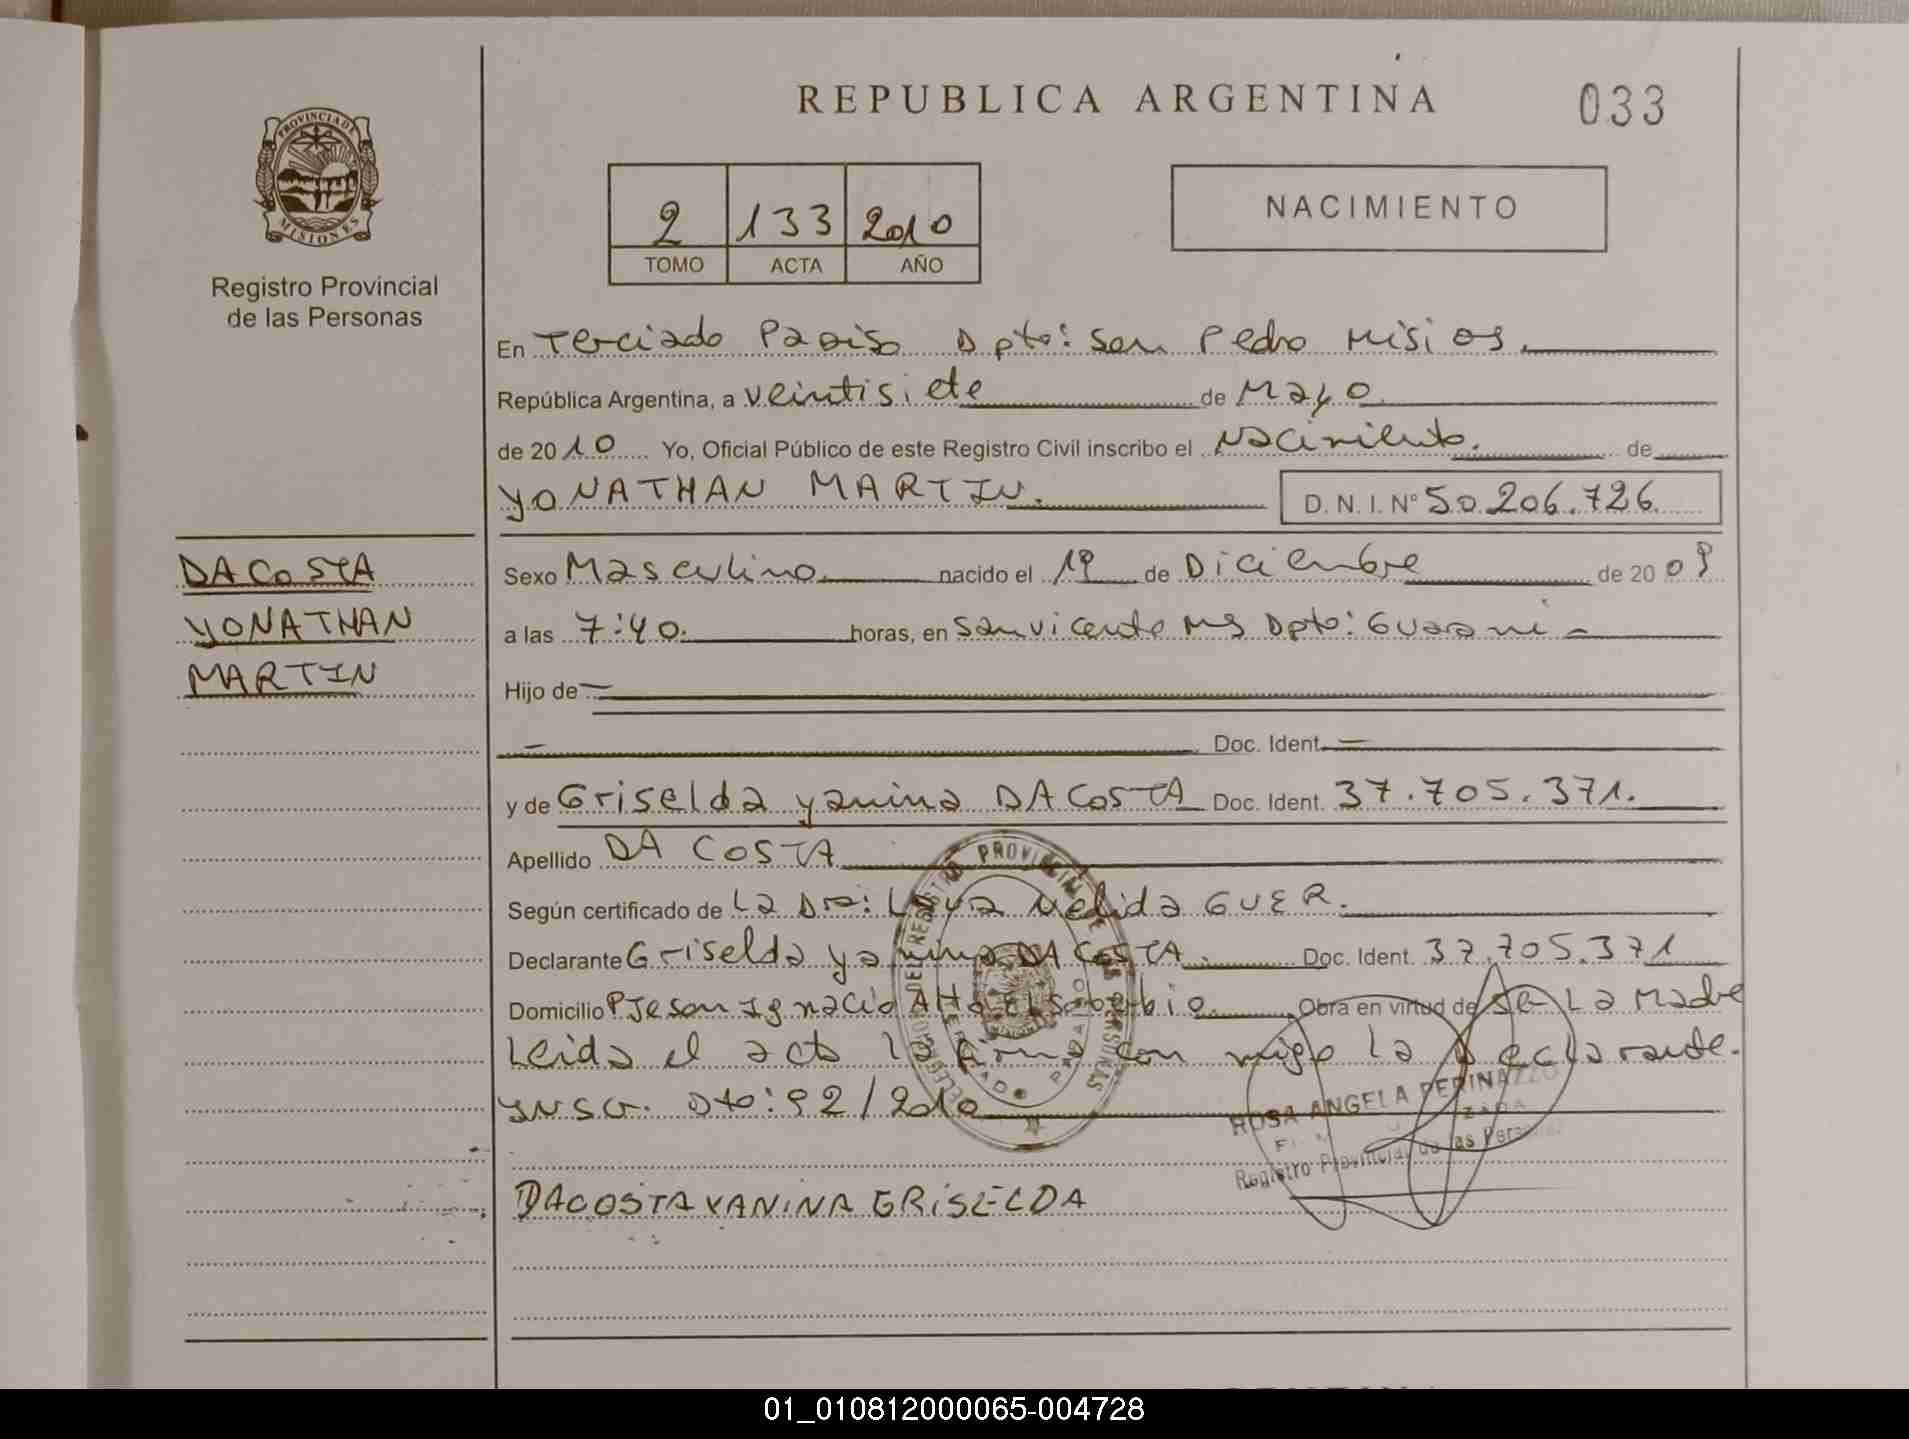 REPUBLICA ARGENTINA
033
PROVINCIA DE
MISIONES
Registro Provincial
de las Personas
2 133 2010
TOMO ACTA AÑO
NACIMIENTO
En Terciado Paaiso Dpto: San Pedro Misios.
República Argentina, a veintisiete de Mayo
de 2010 Yo, Oficial Público de este Registro Civil inscribo el Nacimiento. de
YONATHAN MARTIN. D. N. I. Nº 50.206.726
DACOSTA
YONATHAN
MARTIN
Sexo Masculino nacido el 19 de Diciembre de 2009
a las 7:40. horas, en San Vicente Ms Dpto: Guarani -
Hijo de —
— Doc. Ident. —
y de Griselda Yanina DA COSTA Doc. Ident. 37.705.371.
Apellido DA COSTA
Según certificado de La Dra: Nelida GUER.
Declarante Griselda Yanina DA COSTA. Doc. Ident. 37.705.371
Domicilio Pje San Ignacio Alto El Soberbio Obra en virtud de Ser La Madre
Leida el acta la firma con migo la Declarante.
Insc. Dto: 92/2010
ROSA ANGELA PERINAZZO
Registro Provincial de las Personas
DACOSTA YANINA GRISELDA
01_010812000065-004728